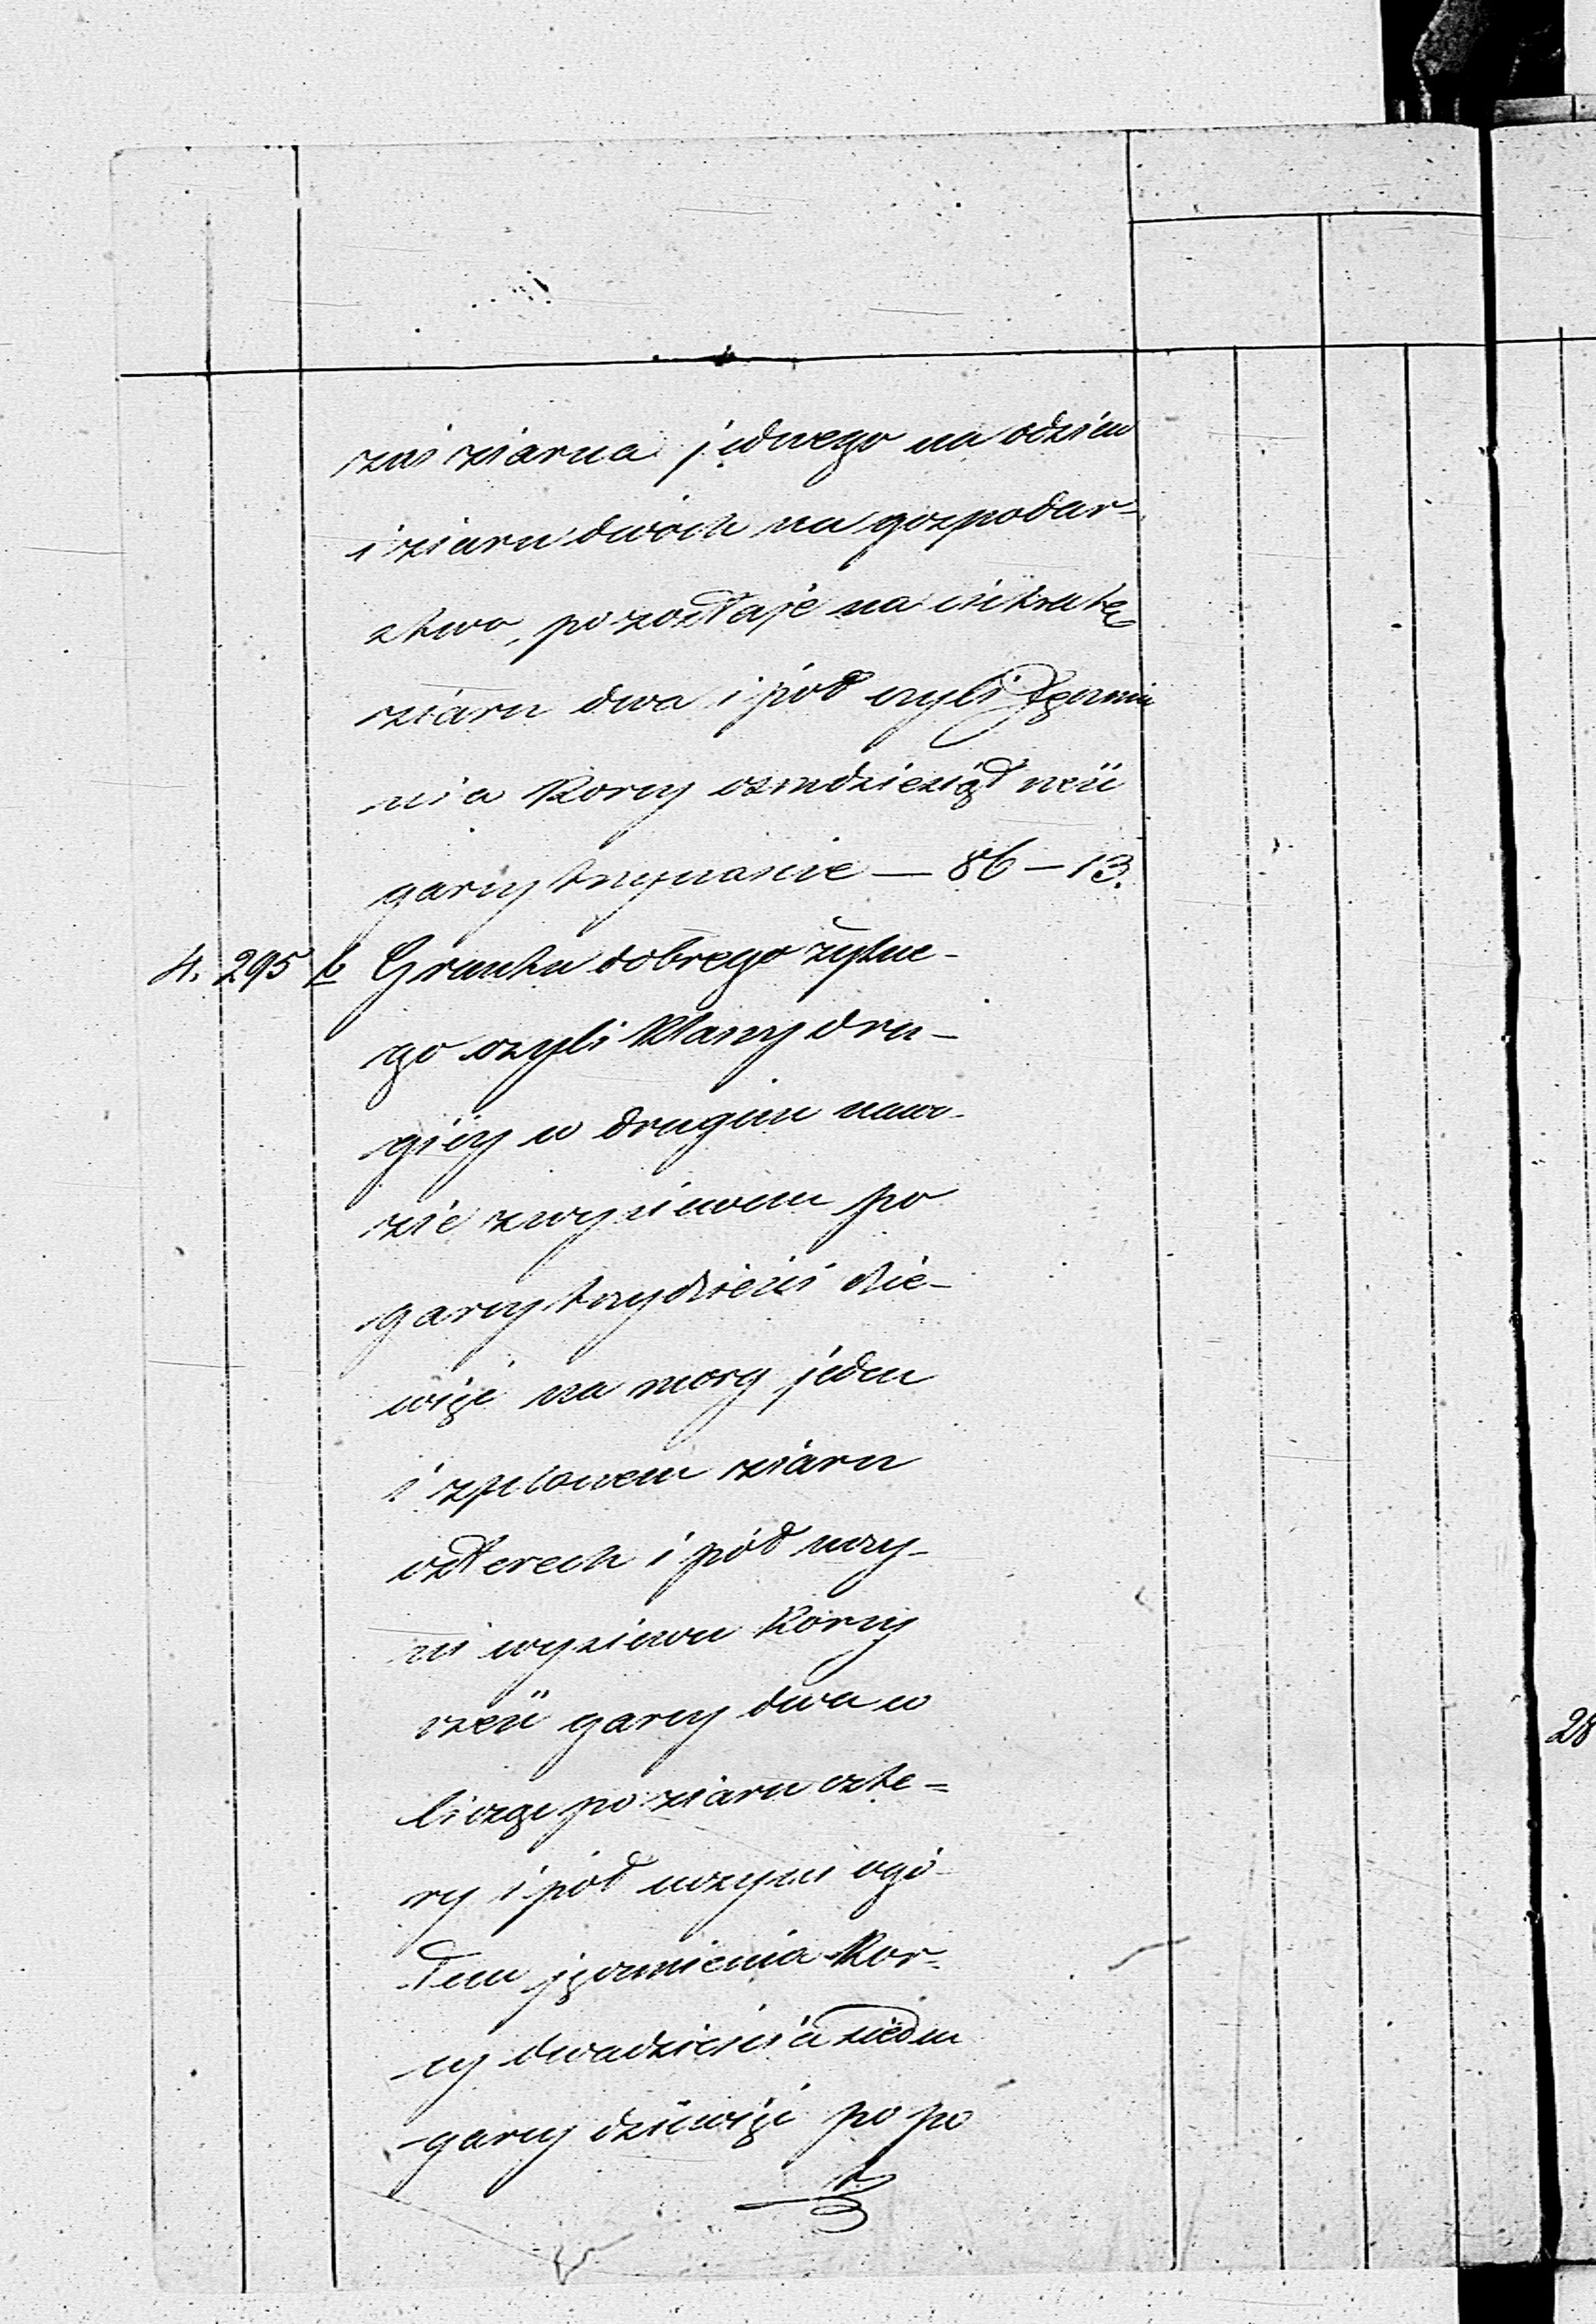 ziarna jednego na odsiew
i ziarn dwóch na gospodar-
stwo, pozostaje na intratę
ziarn dwa i pół czyli Jęcmie
nia Korcy ośmdziesiąt sześć
garcy trzynaście — 86 — 13.
4. 295 b Gruntu dobrego żytne-
go czyli Klassy dru-
giéy w drugim nawo-
zie z wysiewem po
garcy trzydzieści dzie-
więć na morg jeden
i z plonem ziarn
czterech i pół czy-
ni wysiewu Korcy
sześć garcy dwa w
licząc po ziarn czte-
ry i pół uczyni ogó-
łem jęcmienia Kor-
cy dwadzieścia siedm
garcy dziewięć po po
28